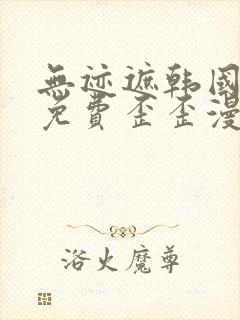 無迹遮韩國
免費歪歪漫
浴火魔尊